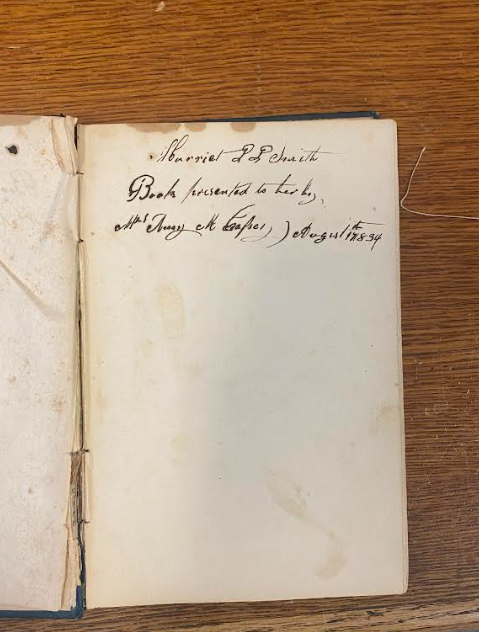 Harriet P P Smith
Book presented to her by,
Mrs Amy M ) August 1834